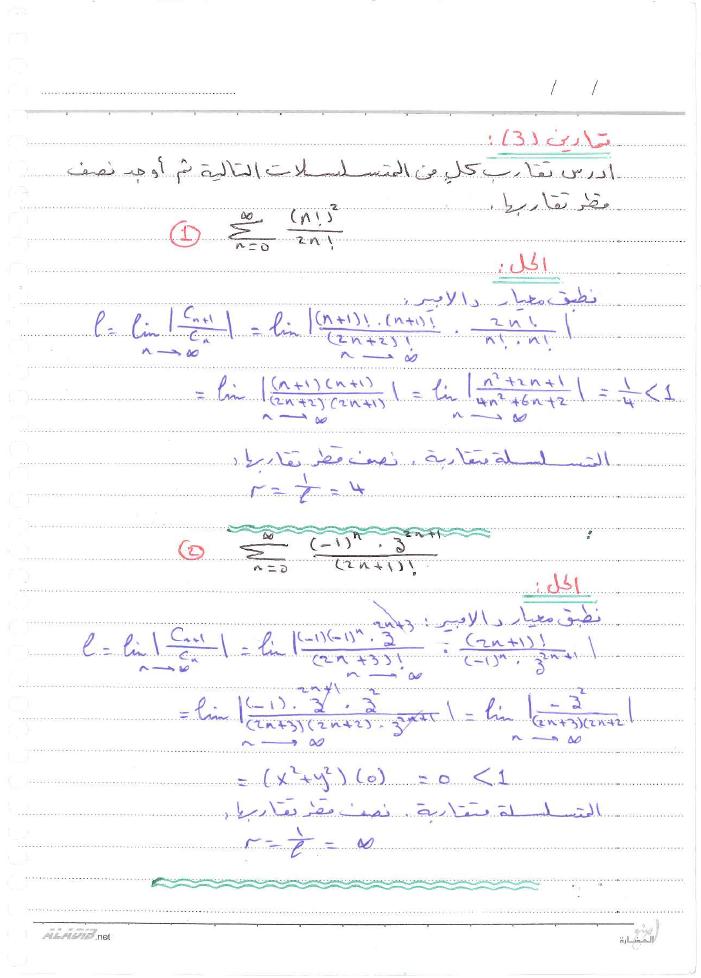 / /
تمارين (3):
ادرس تقارب كلٍ من المتسلسلات التالية ثم أوجد نصف
قطر تقاربها.
① ∑_{n=0}^{∞} (n!)² / 2n!
الحل:
نطبق معيار دالامبير:
l = lim_{n→∞} |C_{n+1} / C_n| = lim_{n→∞} |((n+1)! . (n+1)!) / (2n+2)! . 2n! / (n! . n!)|
= lim_{n→∞} |(n+1)(n+1) / (2n+2)(2n+1)| = lim_{n→∞} |(n²+2n+1) / (4n²+6n+2)| = 1/4 < 1
المتسلسلة متقاربة. نصف قطر تقاربها,
r = 1/l = 4
② ∑_{n=0}^{∞} ((-1)^n . z^{2n+1}) / (2n+1)!
الحل:
نطبق معيار دالامبير:
l = lim_{n→∞} |C_{n+1} / C_n| = lim_{n→∞} |((-1)(-1)^n . z^{2n+3}) / (2n+3)! . (2n+1)! / ((-1)^n . z^{2n+1})|
= lim_{n→∞} |((-1) . z^{2n+1} . z²) / ((2n+3)(2n+2) . z^{2n+1})| = lim_{n→∞} |-z² / (2n+3)(2n+2|
= (x²+y²)(0) = 0 < 1
المتسلسلة متقاربة. نصف قطر تقاربها,
r = 1/l = ∞
ALADIB.net
الحضارة